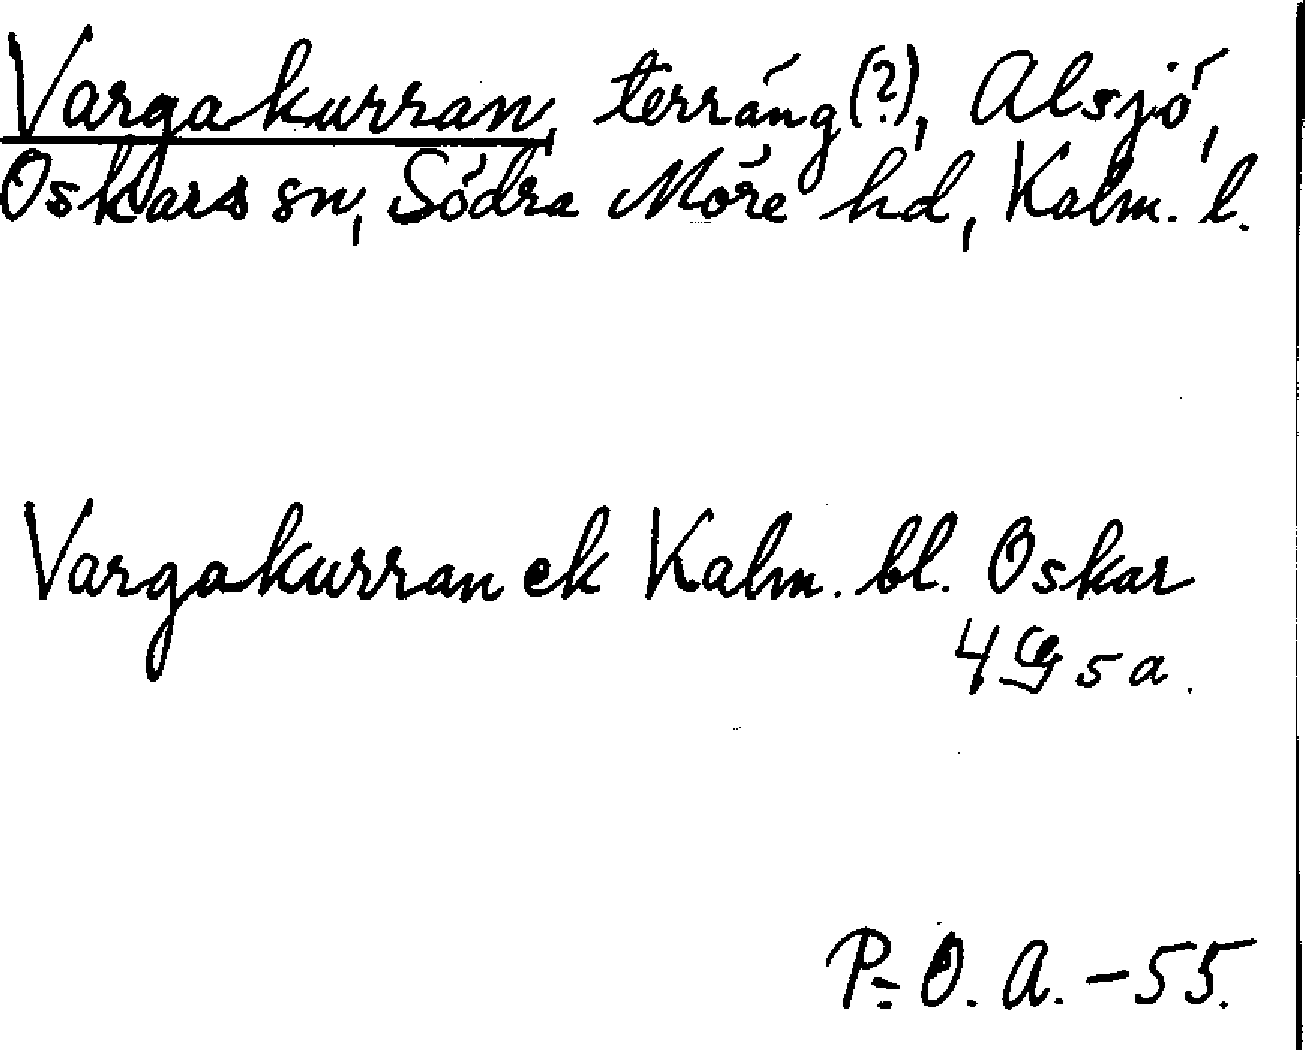 Vargakurran, terräng(?), Alsjö,
Oskars sn, Södra Möre hd, Kalm. l.
Vargakurran ek Kalm. bl. Oskar
4 G 5 a.
P-O. A. - 55.